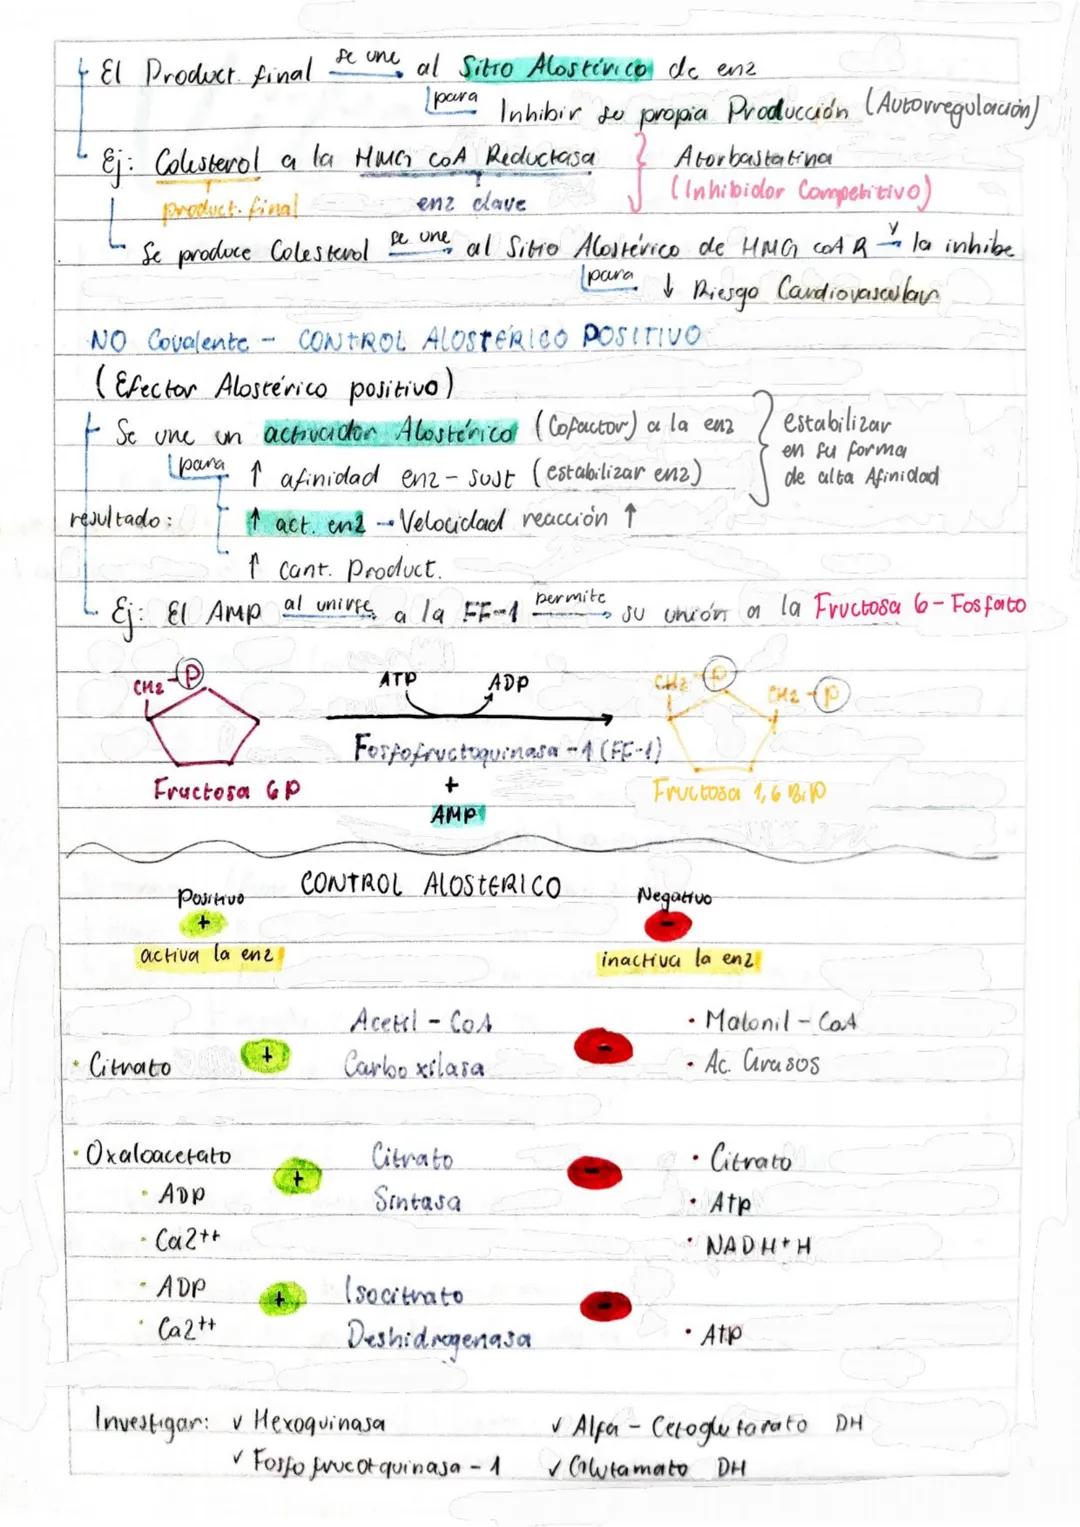 El Product. final se une al Sitio Alostérico de enz
para Inhibir su propia Producción (Autorregulación)
Ej: Colesterol a la HMG CoA Reductasa Atorbastatina
product. final enz clave (Inhibidor Competitivo)
Se produce Colesterol se une al Sitio Alostérico de HMG CoA R y la inhibe
para ↓ Riesgo Cardiovascular
NO Covalente - CONTROL ALOSTÉRICO POSITIVO
(Efector Alostérico positivo)
Se une un activador Alostérico (Cofactor) a la enz
para ↑ afinidad enz - sust (estabilizar enz)
estabilizar
en su forma
de alta Afinidad
resultado: ↑ act. enz → Velocidad reacción ↑
↑ cant. Product.
Ej: El AMP al unirse a la FF-1 permite su unión a la Fructosa 6 - Fosfato
CH2 - P ATP ADP CH2 - P CH2 - P
Fosfofructoquinasa - 1 (FF-1)
Fructosa 6P + Fructosa 1,6 BiP
AMP
CONTROL ALOSTERICO
Positivo Negativo
+ -
activa la enz inactiva la enz
Acetil - CoA • Malonil - CoA
• Citrato + Carboxilasa - • Ac. Grasos
• Oxaloacetato Citrato • Citrato
• ADP + Sintasa - • ATP
• Ca2++ • NADH+H
• ADP + Isocitrato -
• Ca2++ Deshidrogenasa • ATP
Investigar: ✓ Hexoquinasa ✓ Alfa - Cetoglutarato DH
✓ Fosfofrucotquinasa - 1 ✓ Glutamato DH